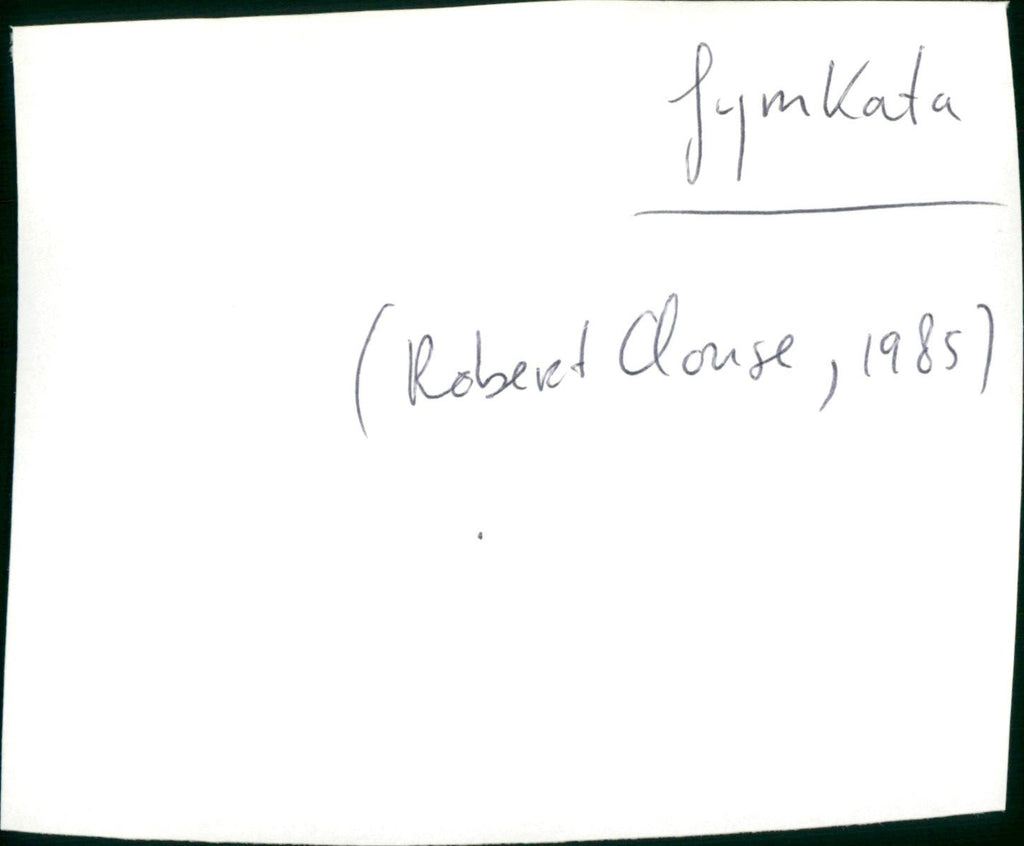 GymKata
(Robert Clouse, 1985)